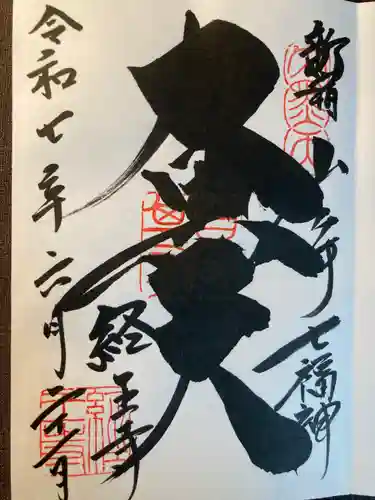 新宿山ノ手七福神
大黒天
経王寺
令和七年六月二十日